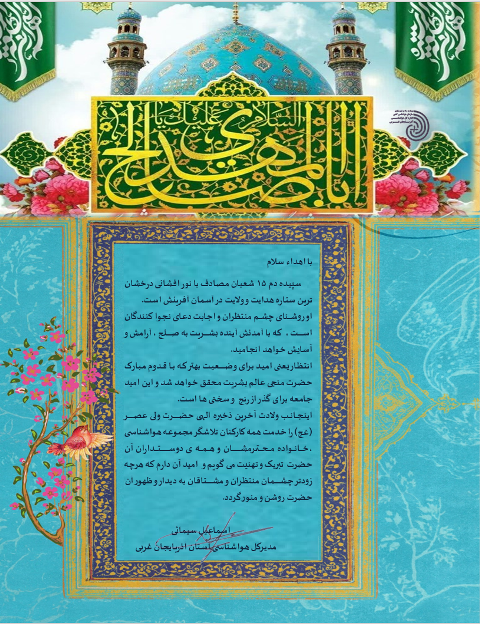 السلام علیک یا
اباصالح المهدی
با اهداء سلام
سپیده دم ۱۵ شعبان مصادف با نور افشانی درخشان
ترین ستاره هدایت و ولایت در اسمان افرینش است.
او روشنای چشم منتظران و اجابت دعای نجوا کنندگان
است . که با امدنش اینده بشریت به صلح ، ارامش و
آسایش خواهد انجامید.
انتظار یعنی امید برای وضعیت بهتر که با قدوم مبارک
حضرت منجی عالم بشریت محقق خواهد شد و این امید
جامعه برای گذر از رنج و سختی ها است.
اینجانب ولادت آخرین ذخیره الهی حضرت ولی عصر
(عج) را خدمت همه کارکنان تلاشگر مجموعه هواشناسی
،خانواده محترمشان و همه ی دوستداران آن
حضرت تبریک و تهنیت می گویم و امید آن دارم که هرچه
زودتر چشمان منتظران و مشتاقان به دیدار و ظهور ان
حضرت روشن و منور گردد.
اسماعیل سیمانی
مدیرکل هواشناسی استان اذربایجان غربی